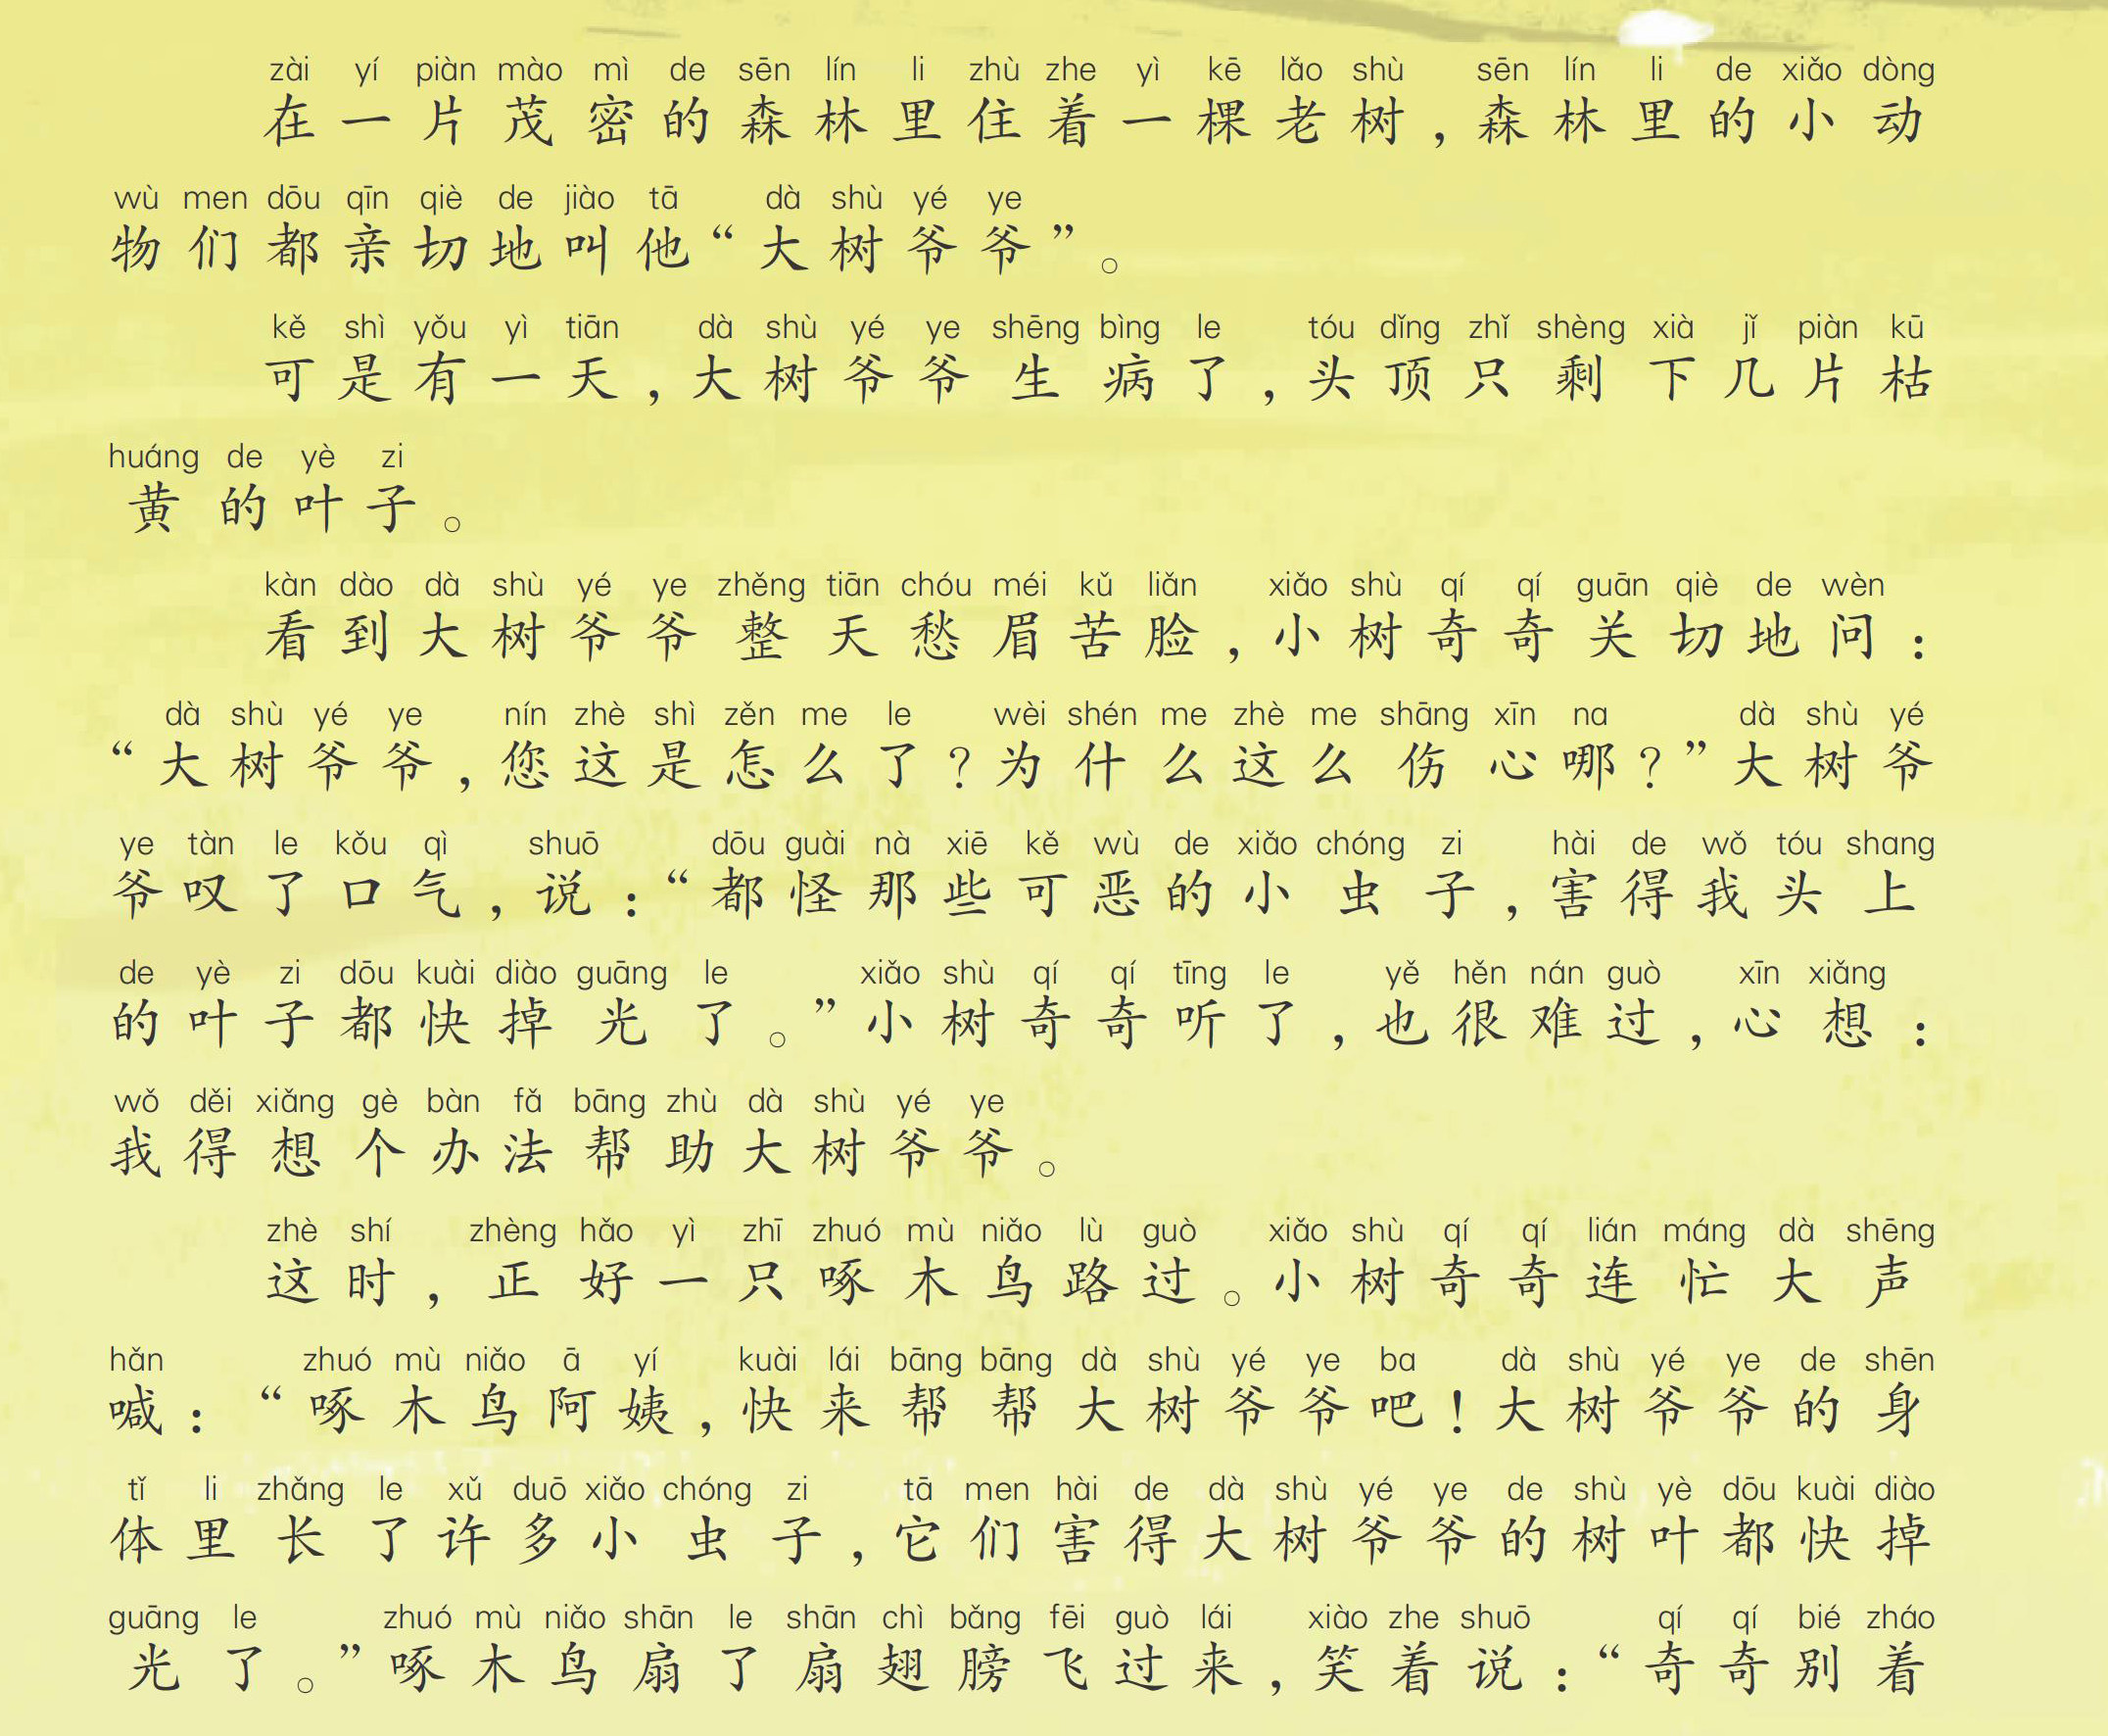 zài yí piàn mào mì de sēn lín li zhù zhe yì kē lǎo shù sēn lín li de xiǎo dòng
在一片茂密的森林里住着一棵老树，森林里的小动
wù men dōu qīn qiè de jiào tā dà shù yé ye
物们都亲切地叫他“大树爷爷”。
kě shì yǒu yì tiān dà shù yé ye shēng bìng le tóu dǐng zhǐ shèng xià jǐ piàn kū
可是有一天，大树爷爷生病了，头顶只剩下几片枯
huáng de yè zi
黄的叶子。
kàn dào dà shù yé ye zhěng tiān chóu méi kǔ liǎn xiǎo shù qí qí guān qiè de wèn
看到大树爷爷整天愁眉苦脸，小树奇奇关切地问：
dà shù yé ye nín zhè shì zěn me le wèi shén me zhè me shāng xīn na dà shù yé
“大树爷爷，您这是怎么了？为什么这么伤心哪？”大树爷
ye tàn le kǒu qì shuō dōu guài nà xiē kě wù de xiǎo chóng zi hài de wǒ tóu shang
爷叹了口气，说：“都怪那些可恶的小虫子，害得我头上
de yè zi dōu kuài diào guāng le xiǎo shù qí qí tīng le yě hěn nán guò xīn xiǎng
的叶子都快掉光了。”小树奇奇听了，也很难过，心想：
wǒ děi xiǎng gè bàn fǎ bāng zhù dà shù yé ye
我得想个办法帮助大树爷爷。
zhè shí zhèng hǎo yì zhī zhuó mù niǎo lù guò xiǎo shù qí qí lián máng dà shēng
这时，正好一只啄木鸟路过。小树奇奇连忙大声
hǎn zhuó mù niǎo ā yí kuài lái bāng bāng dà shù yé ye ba dà shù yé ye de shēn
喊：“啄木鸟阿姨，快来帮帮大树爷爷吧！大树爷爷的身
tǐ li zhǎng le xǔ duō xiǎo chóng zi tā men hài de dà shù yé ye de shù yè dōu kuài diào
体里长了许多小虫子，它们害得大树爷爷的树叶都快掉
guāng le zhuó mù niǎo shān le shān chì bǎng fēi guò lái xiào zhe shuō qí qí bié zháo
光了。”啄木鸟扇了扇翅膀飞过来，笑着说：“奇奇别着